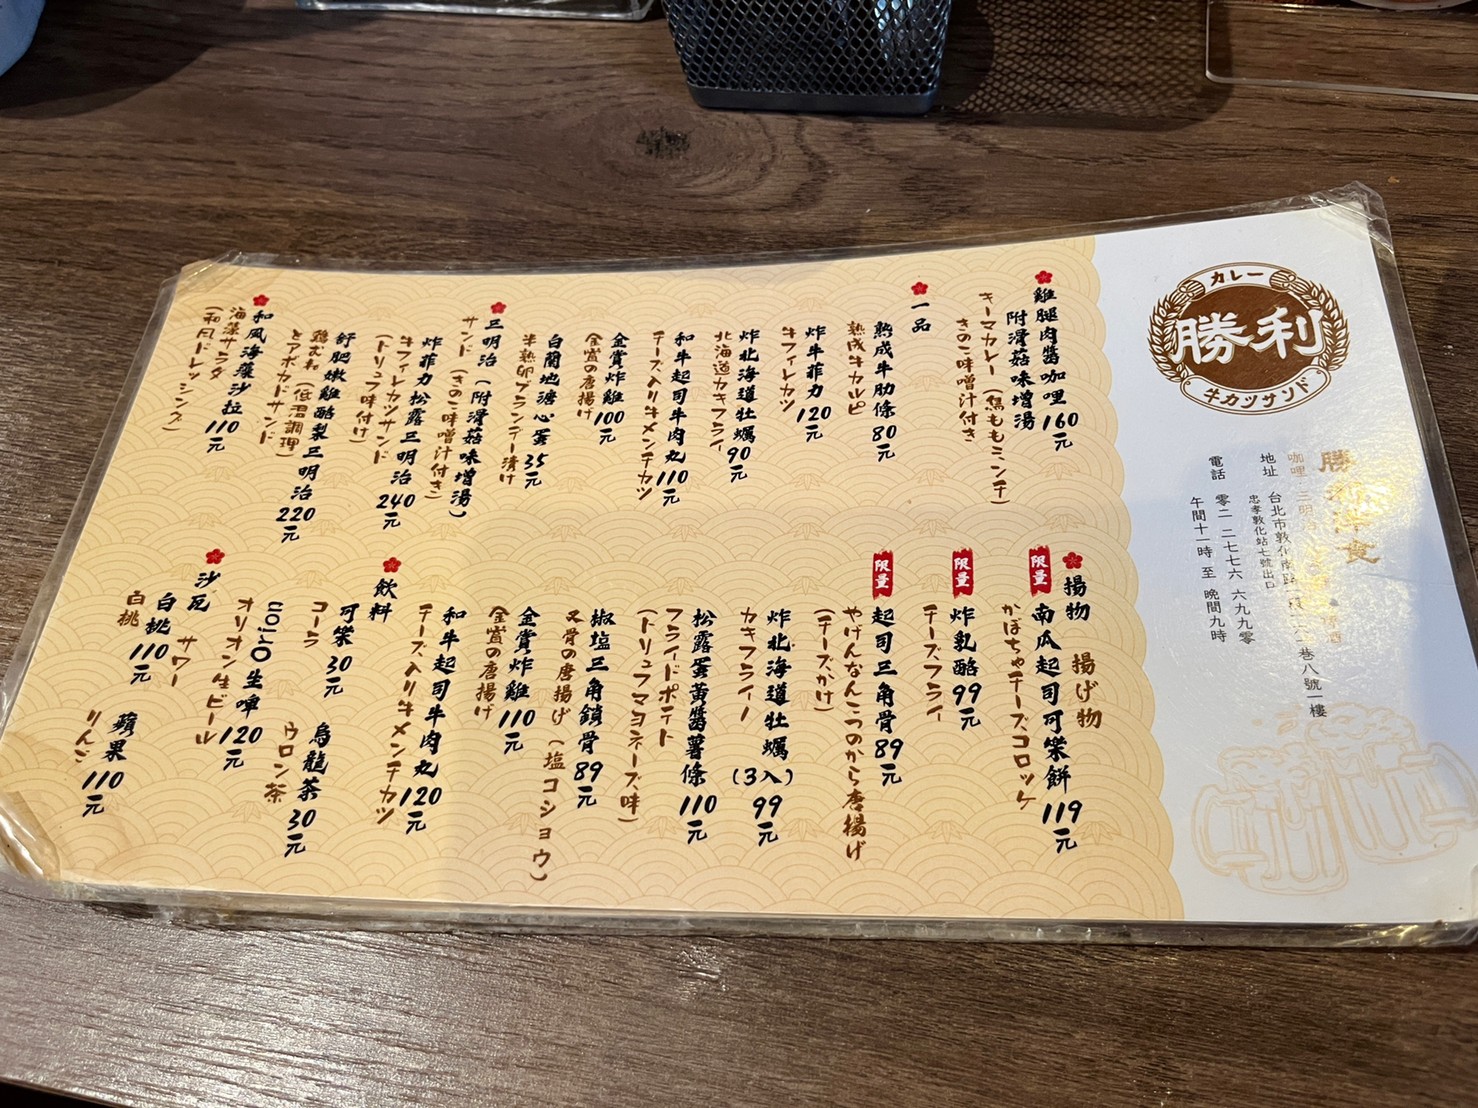 カレー
勝利
牛カツサンド
電話 零二 二七七六 六九九零
午間十一時 至 晚間九時
忠孝敦化站七號出口
雞腿肉醬咖哩 160元
附滑菇味増湯
キーマカレー（鶏ももミンチ）
きのこ味噌汁付き
一品
熟成牛肋條 80元
熟成牛カルビ
炸牛菲力 120元
牛フィレカツ
炸北海道牡蠣 90元
北海道カキフライ
和牛起司牛肉丸 110元
チーズ入り牛メンチカツ
金賞炸雞 100元
金賞の唐揚げ
白蘭地溏心蛋 35元
半熟卵ブランデー漬け
三明治（附滑菇味増湯）
サンド（きのこ味噌汁付き）
炸菲力松露三明治 240元
牛フィレカツサンド
（トリュフ味付け）
舒肥嫩雞酪梨三明治 220元
鶏むね（低温調理）
とアボカドサンド
和風海藻沙拉 110元
海藻サラダ
（和風ドレッシング）
揚物 揚げ物
限量
南瓜起司可樂餅 119元
かぼちゃチーズコロッケ
限量
炸乳酪 99元
チーズフライ
限量
起司三角骨 89元
やげんなんこつのから唐揚げ
（チーズかけ）
炸北海道牡蠣（3入）99元
カキフライー
松露蛋黃醬薯條 110元
フライドポテト
（トリュフマヨネーズ味）
椒塩三角鎖骨 89元
叉骨の唐揚げ（塩コショウ）
金賞炸雞 110元
金賞の唐揚げ
和牛起司牛肉丸 120元
チーズ入り牛メンチカツ
飲料
可樂 30元
コーラ
烏龍茶 30元
ウロン茶
Orion生啤 120元
オリオン生ビール
沙瓦 サワー
白桃 110元
白桃
蘋果 110元
りんご